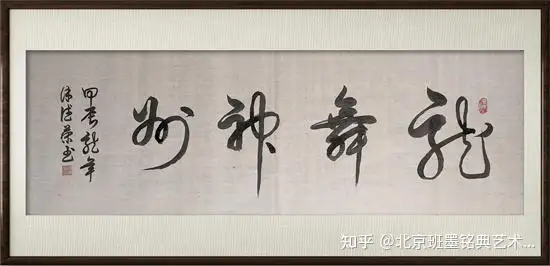 龍舞神州
甲辰龍年
德荣书
知乎 @北京班墨铭典艺术...